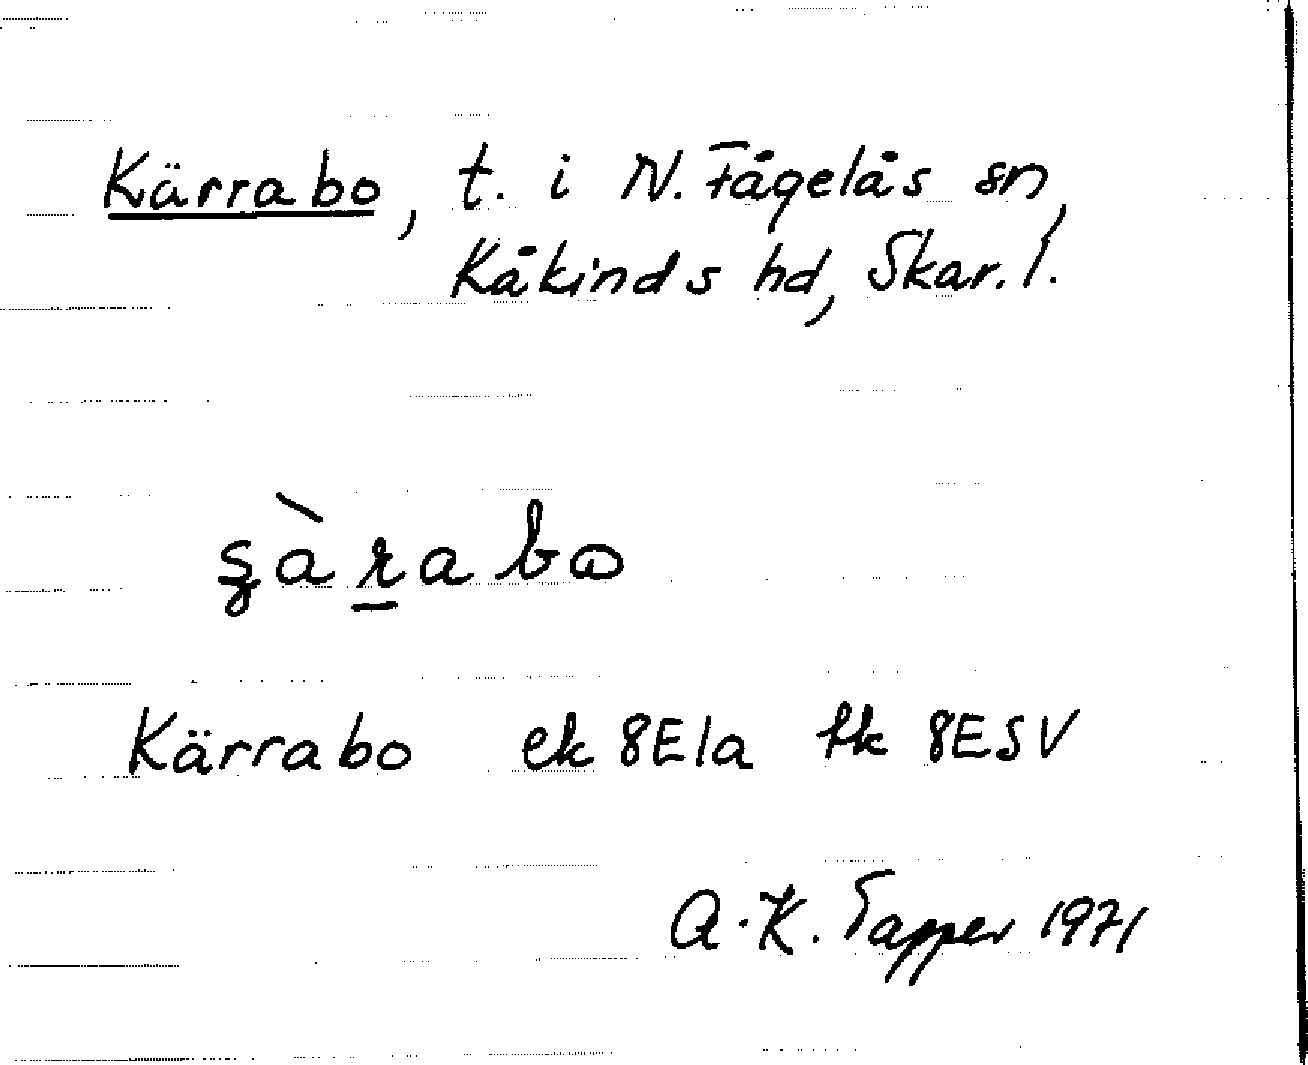 Kärrabo, t. i N. Fågelås sn,
Kåkinds hd, Skar. l.
Kärrabo ek 8E1a tk 8E5V
A.K. Tapper 1971